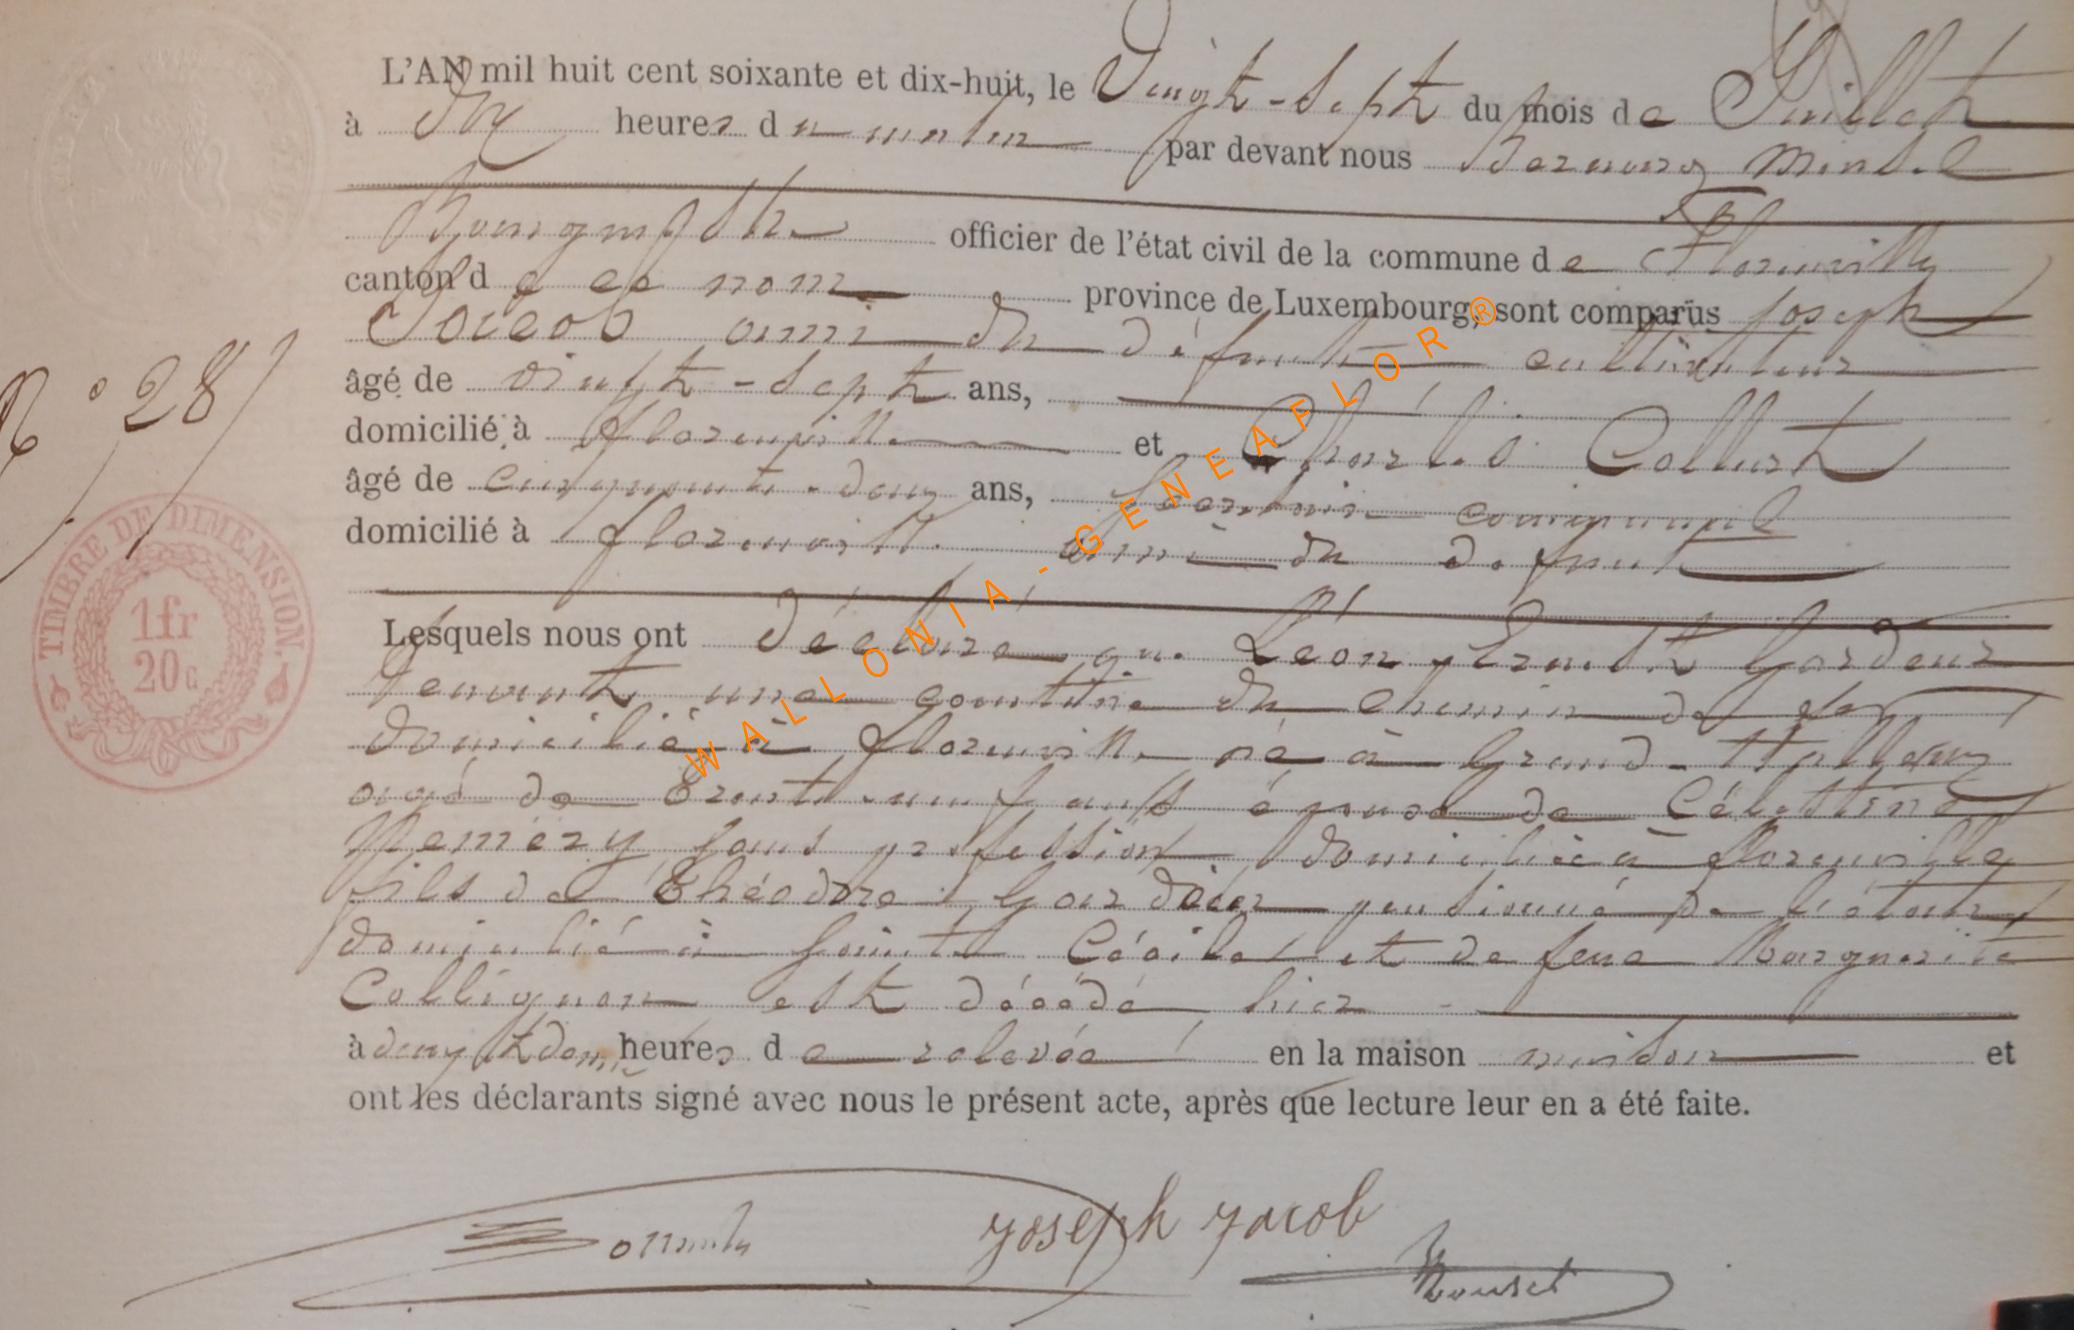 L'AN mil huit cent soixante et dix-huit, le Vingt-Sept du mois de Juillet
à Dix heures du matin par devant nous
officier de l'état civil de la commune de Florenville
canton d e ce nom province de Luxembourg, sont comparüs Joseph
Jacob ami du défunt cultivateur
âgé de vingt-sept ans,
domicilié à florenville et Charles Collart
âgé de cinquante-deux ans, Secrétaire communal
domicilié à florenville ami du défunt
N° 28
TIMBRE DE DIMENSION.
1fr
20c
Lesquels nous ont déclaré que Léon, Ernest Gardeur
tenant une cantine du chemin de fer
domicilié à florenville né à Grand-Halleux
agé de trente-neuf ans époux de Célestine
Neméry sans profession domiciliée à florenville
fils de Théodore Gardeur pensionné de l'état
domicilié à Sainte Cécile et de feue Marguerite
Collignon est décédé hier
à deux et demie heures d e relevée en la maison maison et
ont les déclarants signé avec nous le présent acte, après que lecture leur en a été faite.
Joseph Jacob
WALLONIA-GENEAFLOR®